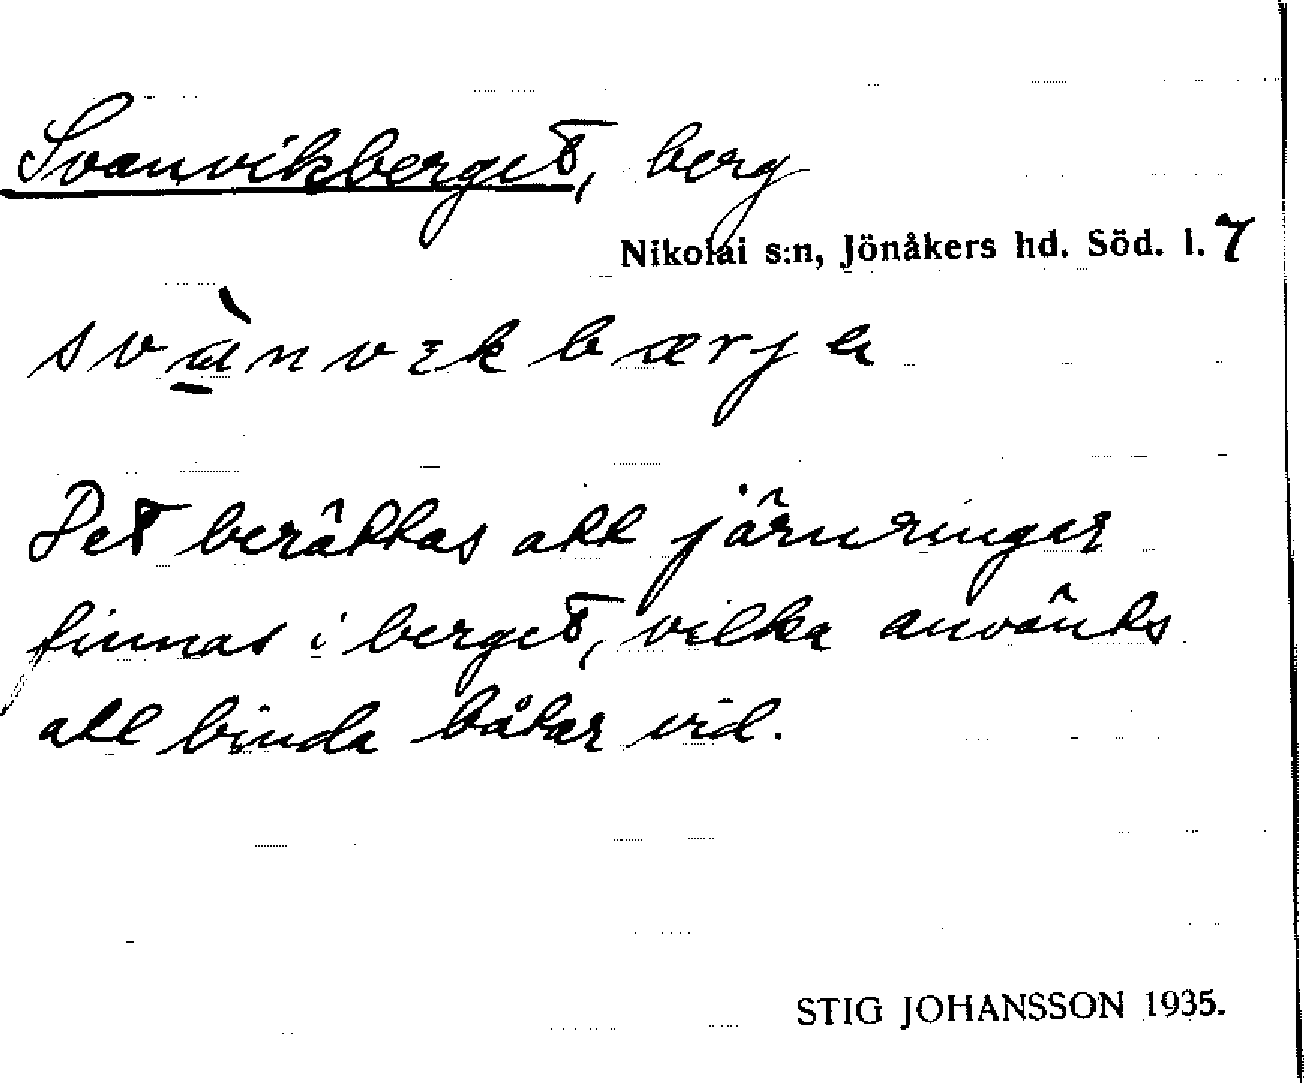 Svanvikberget, berg
Nikolai s:n, Jönåkers hd. Söd. l. 7
svànvɪkbærjɑ
Det berättas att järnringar
finnas i berget, vilka använts
att binda båtar vid.
STIG JOHANSSON 1935.